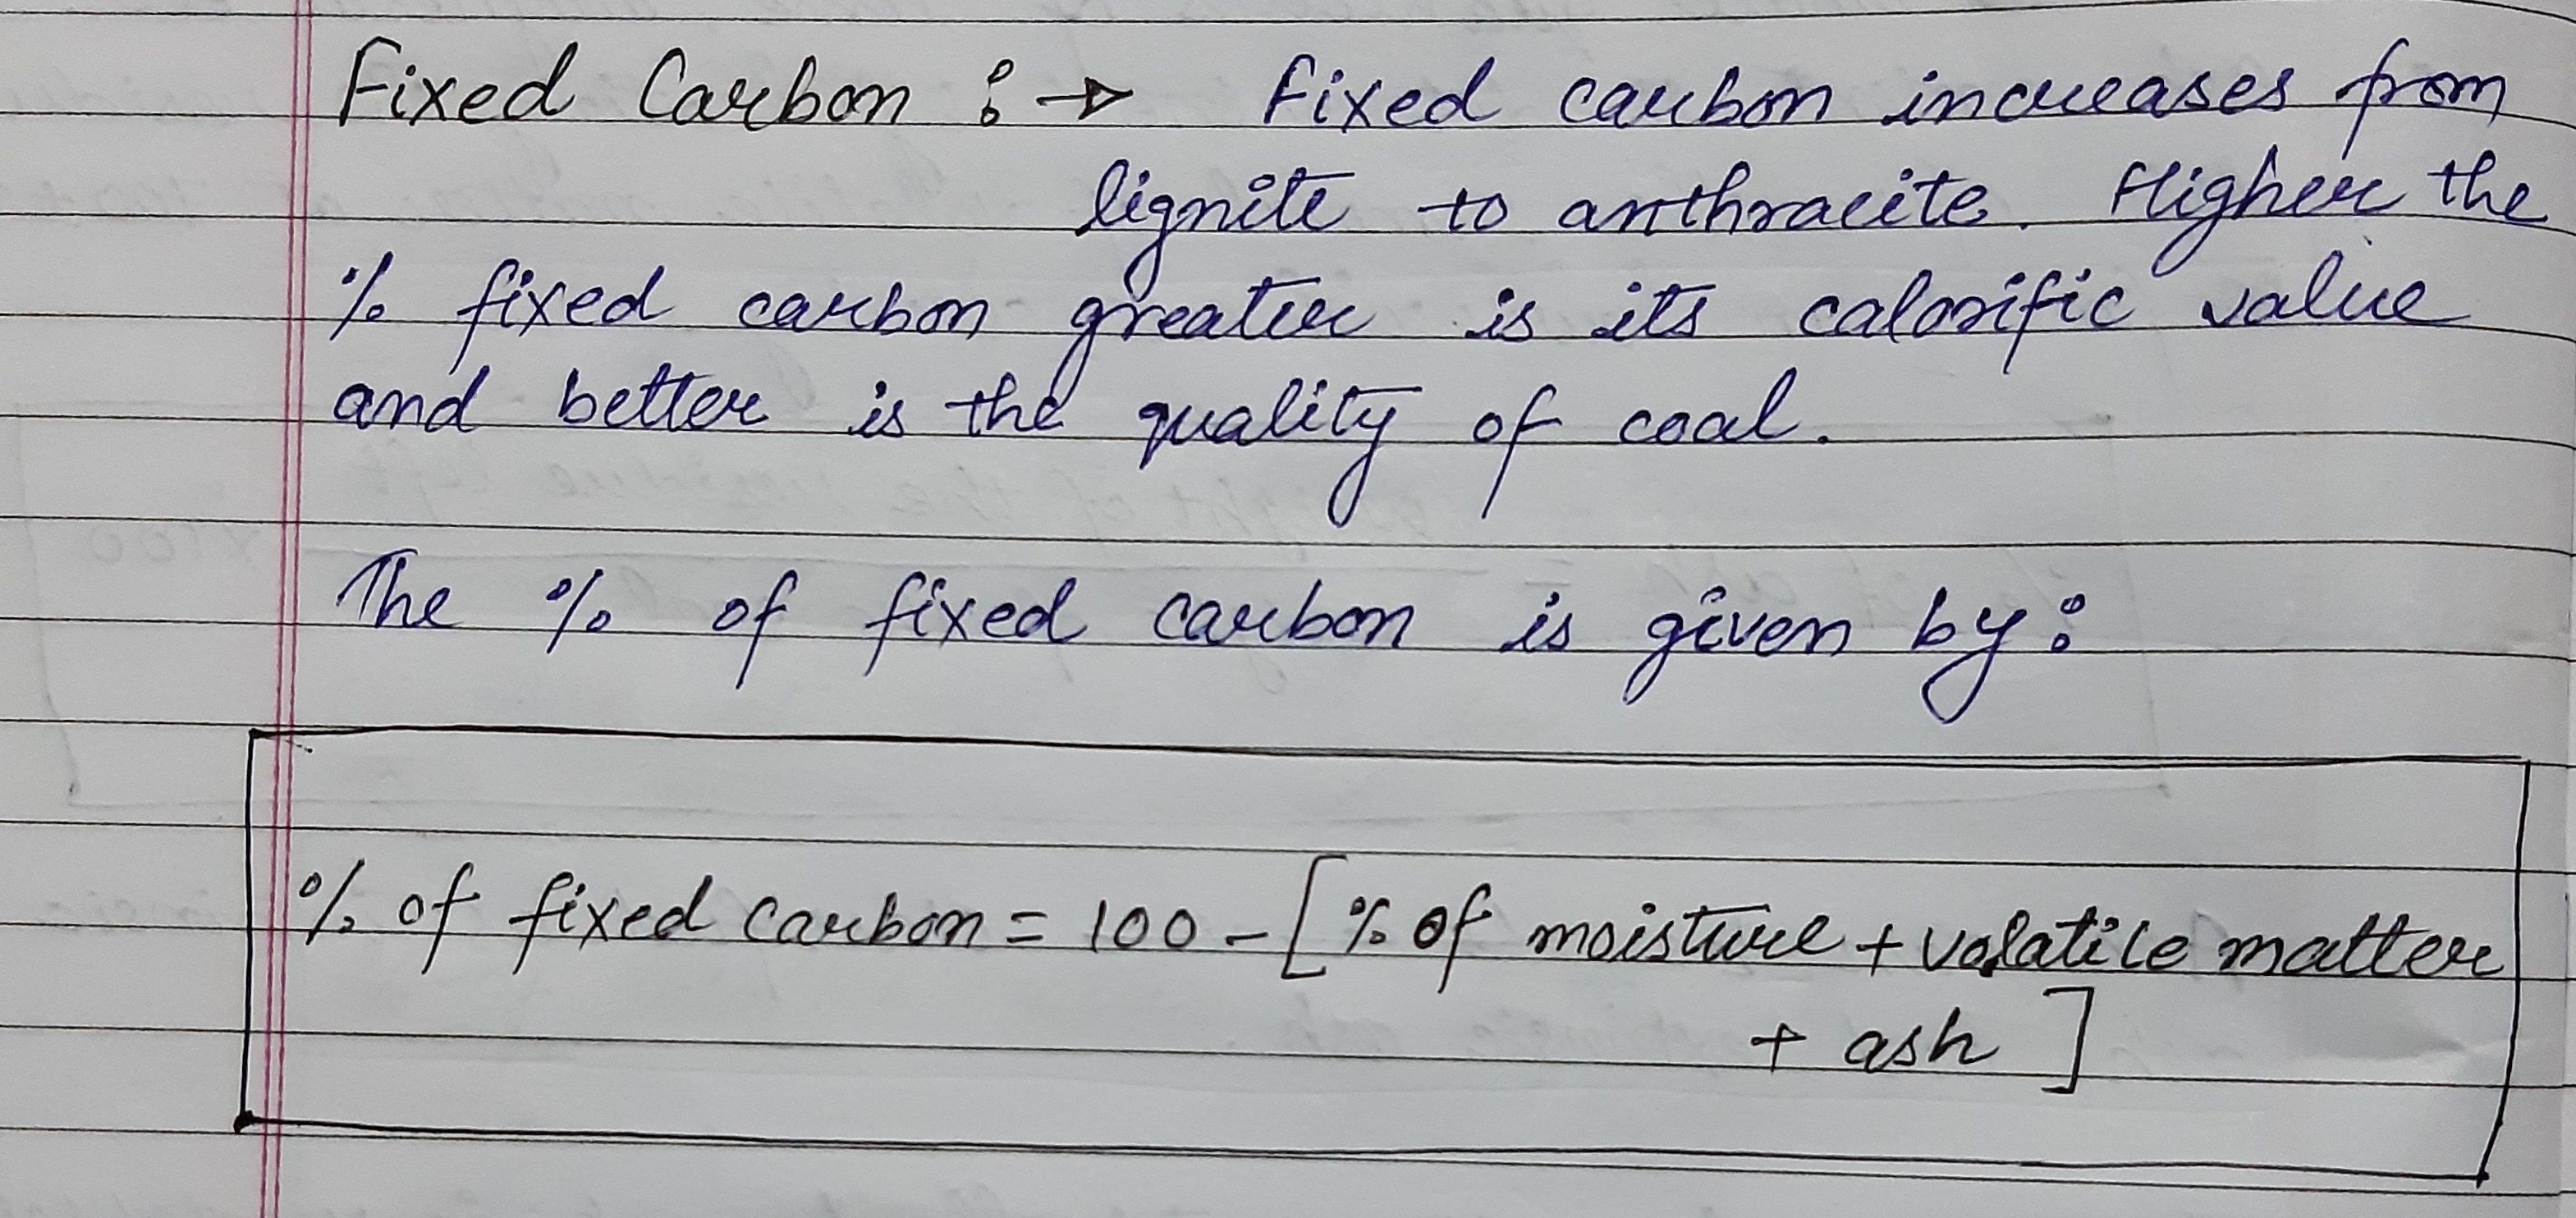 Fixed Carbon :→ Fixed carbon increases from
lignite to anthracite. Higher the
% fixed carbon greater is its calorific value
and better is the quality of coal.
The % of fixed carbon is given by:
% of fixed carbon = 100 - [% of moisture + volatile matter
+ ash ]